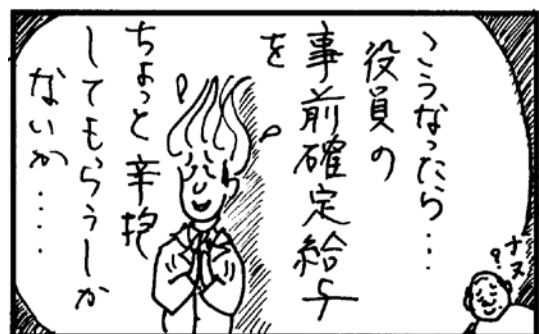 こうなったら…
役員の
事前確定給与
を
ちょっと辛抱
してもらうしか
ないか……
ナヌ
?